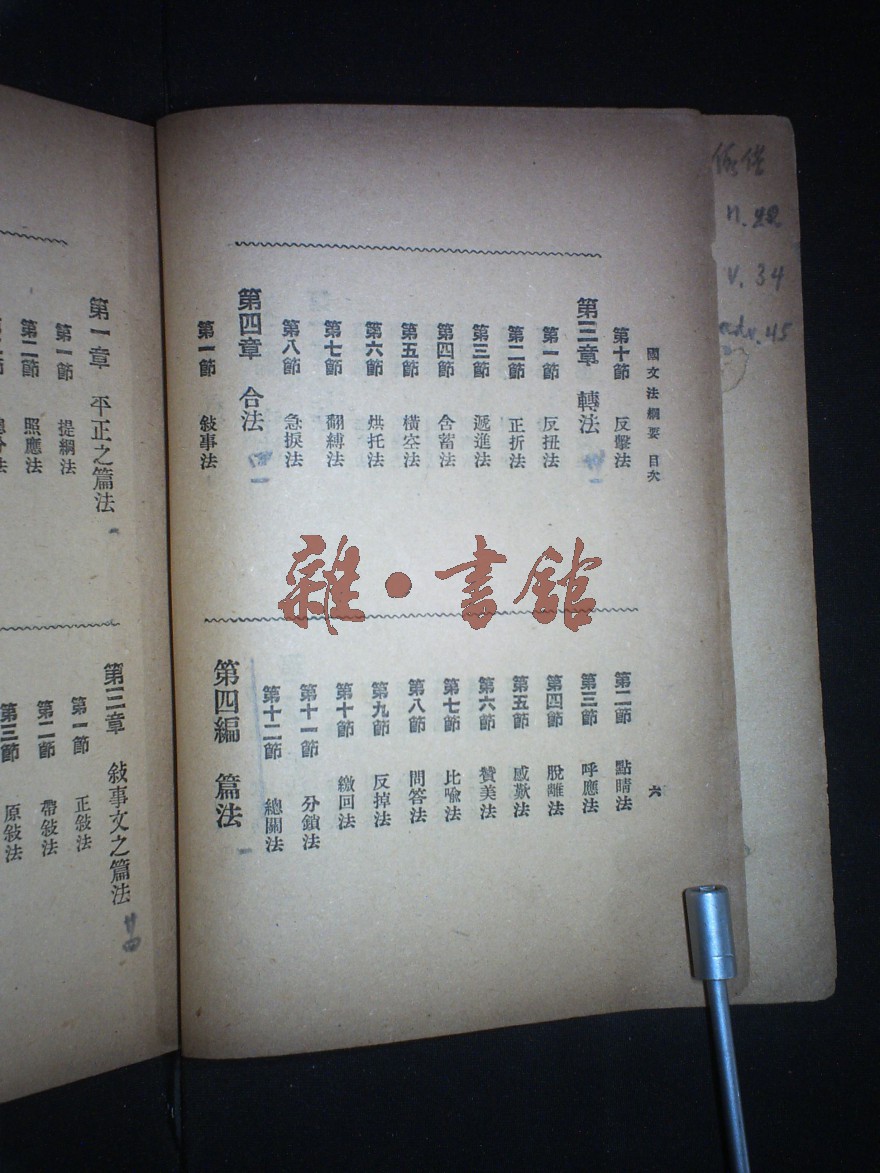 國文法綱要 目次
第十節 反擊法
第三章 轉法
第一節 反扭法
第二節 正折法
第三節 遞進法
第四節 含蓄法
第五節 橫空法
第六節 烘托法
第七節 翻縛法
第八節 急捩法
第四章 合法
第一節 敍事法
六
第二節 點睛法
第三節 呼應法
第四節 脫離法
第五節 感歎法
第六節 贊美法
第七節 比喩法
第八節 問答法
第九節 反掉法
第十節 繳回法
第十一節 分鎖法
第十二節 總關法
第四編 篇法
第一章 平正之篇法
第一節 提綱法
第二節 照應法
第三章 敍事文之篇法
第一節 正敍法
第二節 帶敍法
第三節 原敍法
雜·書館
n.
v. 34
adv. 45